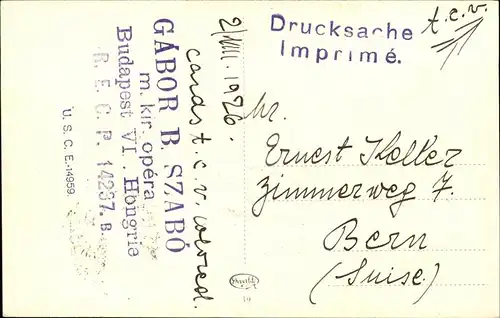 Drucksache
Imprimé.
t.c.v.
2/VIII. 1926.
cards t.c.v. colored.
GÁBOR B. SZABÓ
m. kir. opéra
Budapest VI. Hongrie
R.E.C.P. 14237. B.
U.S.C.E.-14959.
Hr.
Ernest Keller
Zimmerweg 7.
Bern
(Suise).